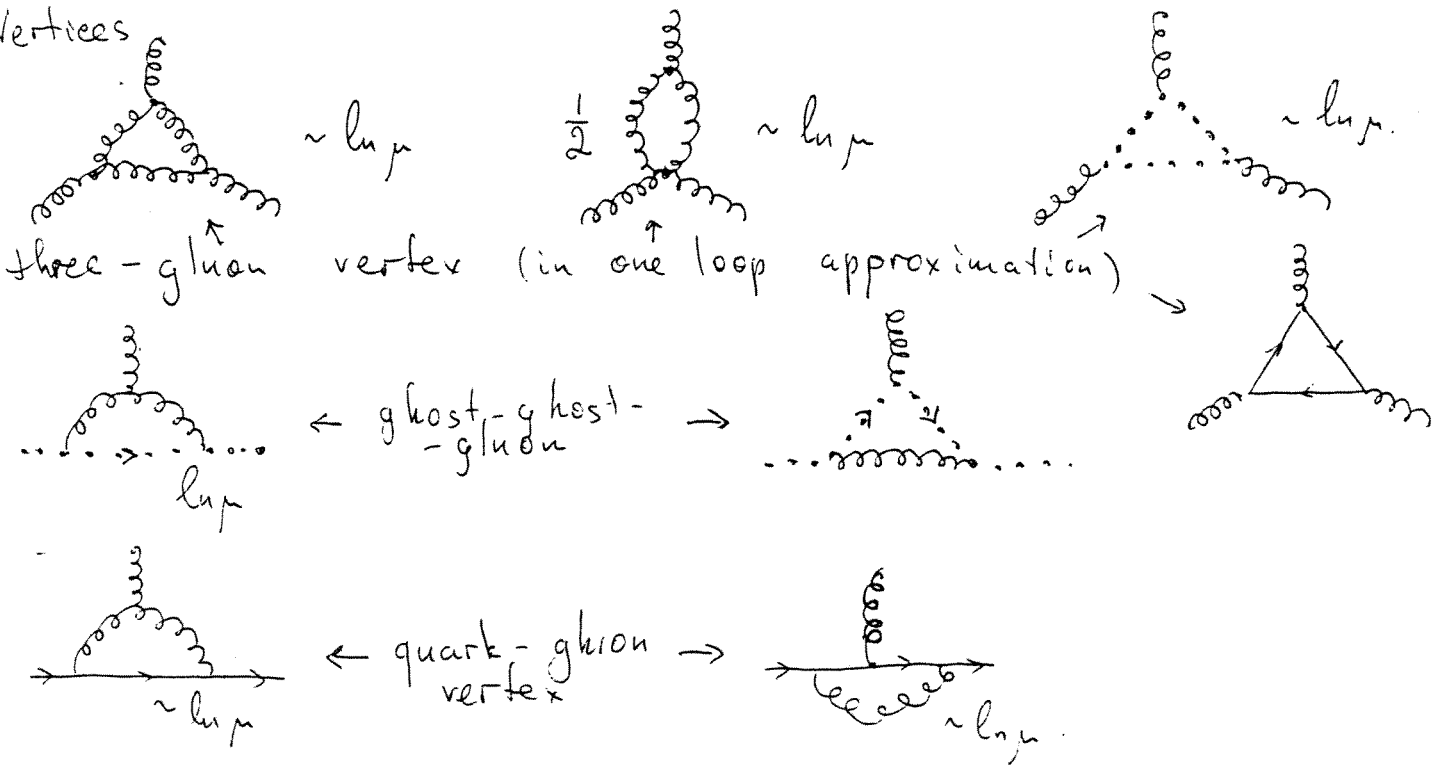 Vertices
~ ln μ
1/2
~ ln μ
~ ln μ.
three-gluon vertex (in one loop approximation)
← ghost-ghost- →
-gluon
ln μ
← quark-gluon →
vertex
~ ln μ
~ ln μ.